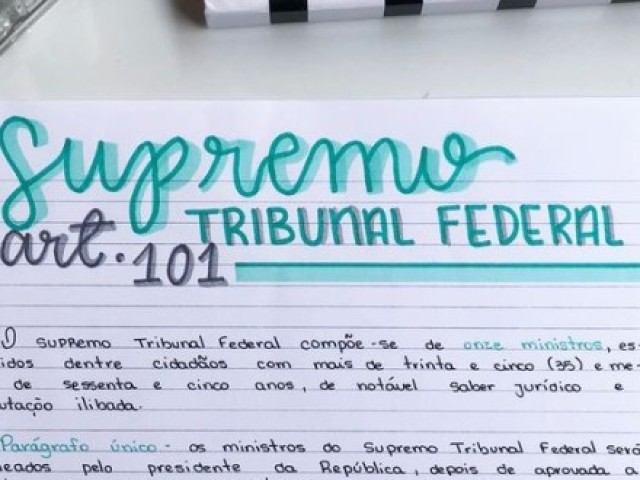 Supremo
TRIBUNAL FEDERAL
art. 101
O SUPREMO Tribunal Federal compõe-se de onze ministros, es-
idos dentre cidadãos com mais de trinta e cinco (35) e me-
de sessenta e cinco anos, de notável saber jurídico e
utação ilibada.
Parágrafo único - os ministros do Supremo Tribunal Federal será
neados pelo presidente da República, depois de aprovada a